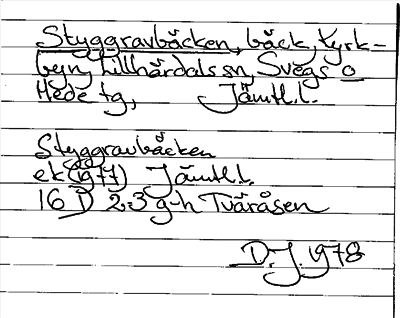 Styggravbäcken, bäck, Kyrk-
byn, Lillhärdals sn, Svegs o
Hede tg, Jämtl.l.
Styggravbäcken
ek (1977) Jämtl.l.
16 D 2-3 g-h Tvåråsen
D.J. 1978